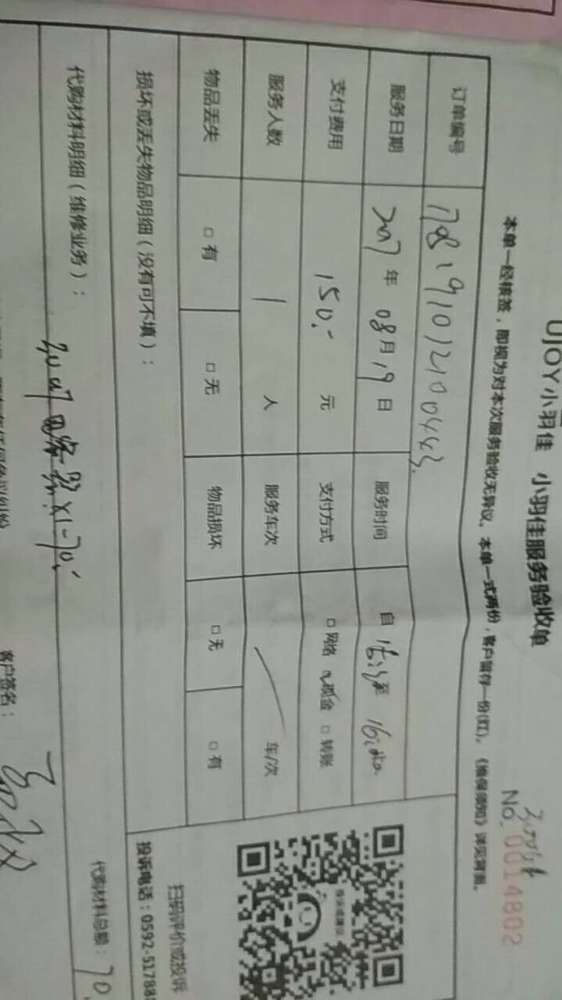 UJOY小羽佳 小羽佳服务验收单
No. 0014802
本单一经核签，即视为对本次服务验收无异议。本单一式两份，客户留存一份(红)。《维保须知》详见背面。
订单编号 178191012100443
服务日期 2017年08月19日 服务时间 自 至
支付费用 150.- 元 支付方式 □网络 现金 □转账
服务人数 1 人 服务车次 车/次
物品丢失 □有 □无 物品损坏 □无 □有
损坏或丢失物品明细（没有可不填）：
扫码评价或投诉
投诉电话：0592-51788
代购材料明细（维修业务）：
x1-70.-
代购材料总额：70.
客户签名：